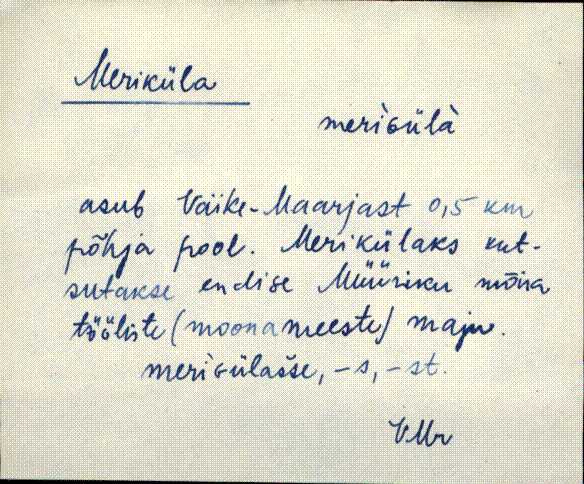 Meriküla
meriɢülà
asub Väike-Maarjast 0,5 km
põhja pool. Merikülaks kut-
sutakse endise Müüriku mõisa
tööliste (moonameeste) maju.
meriɢülašse, -s, -st.
VMr